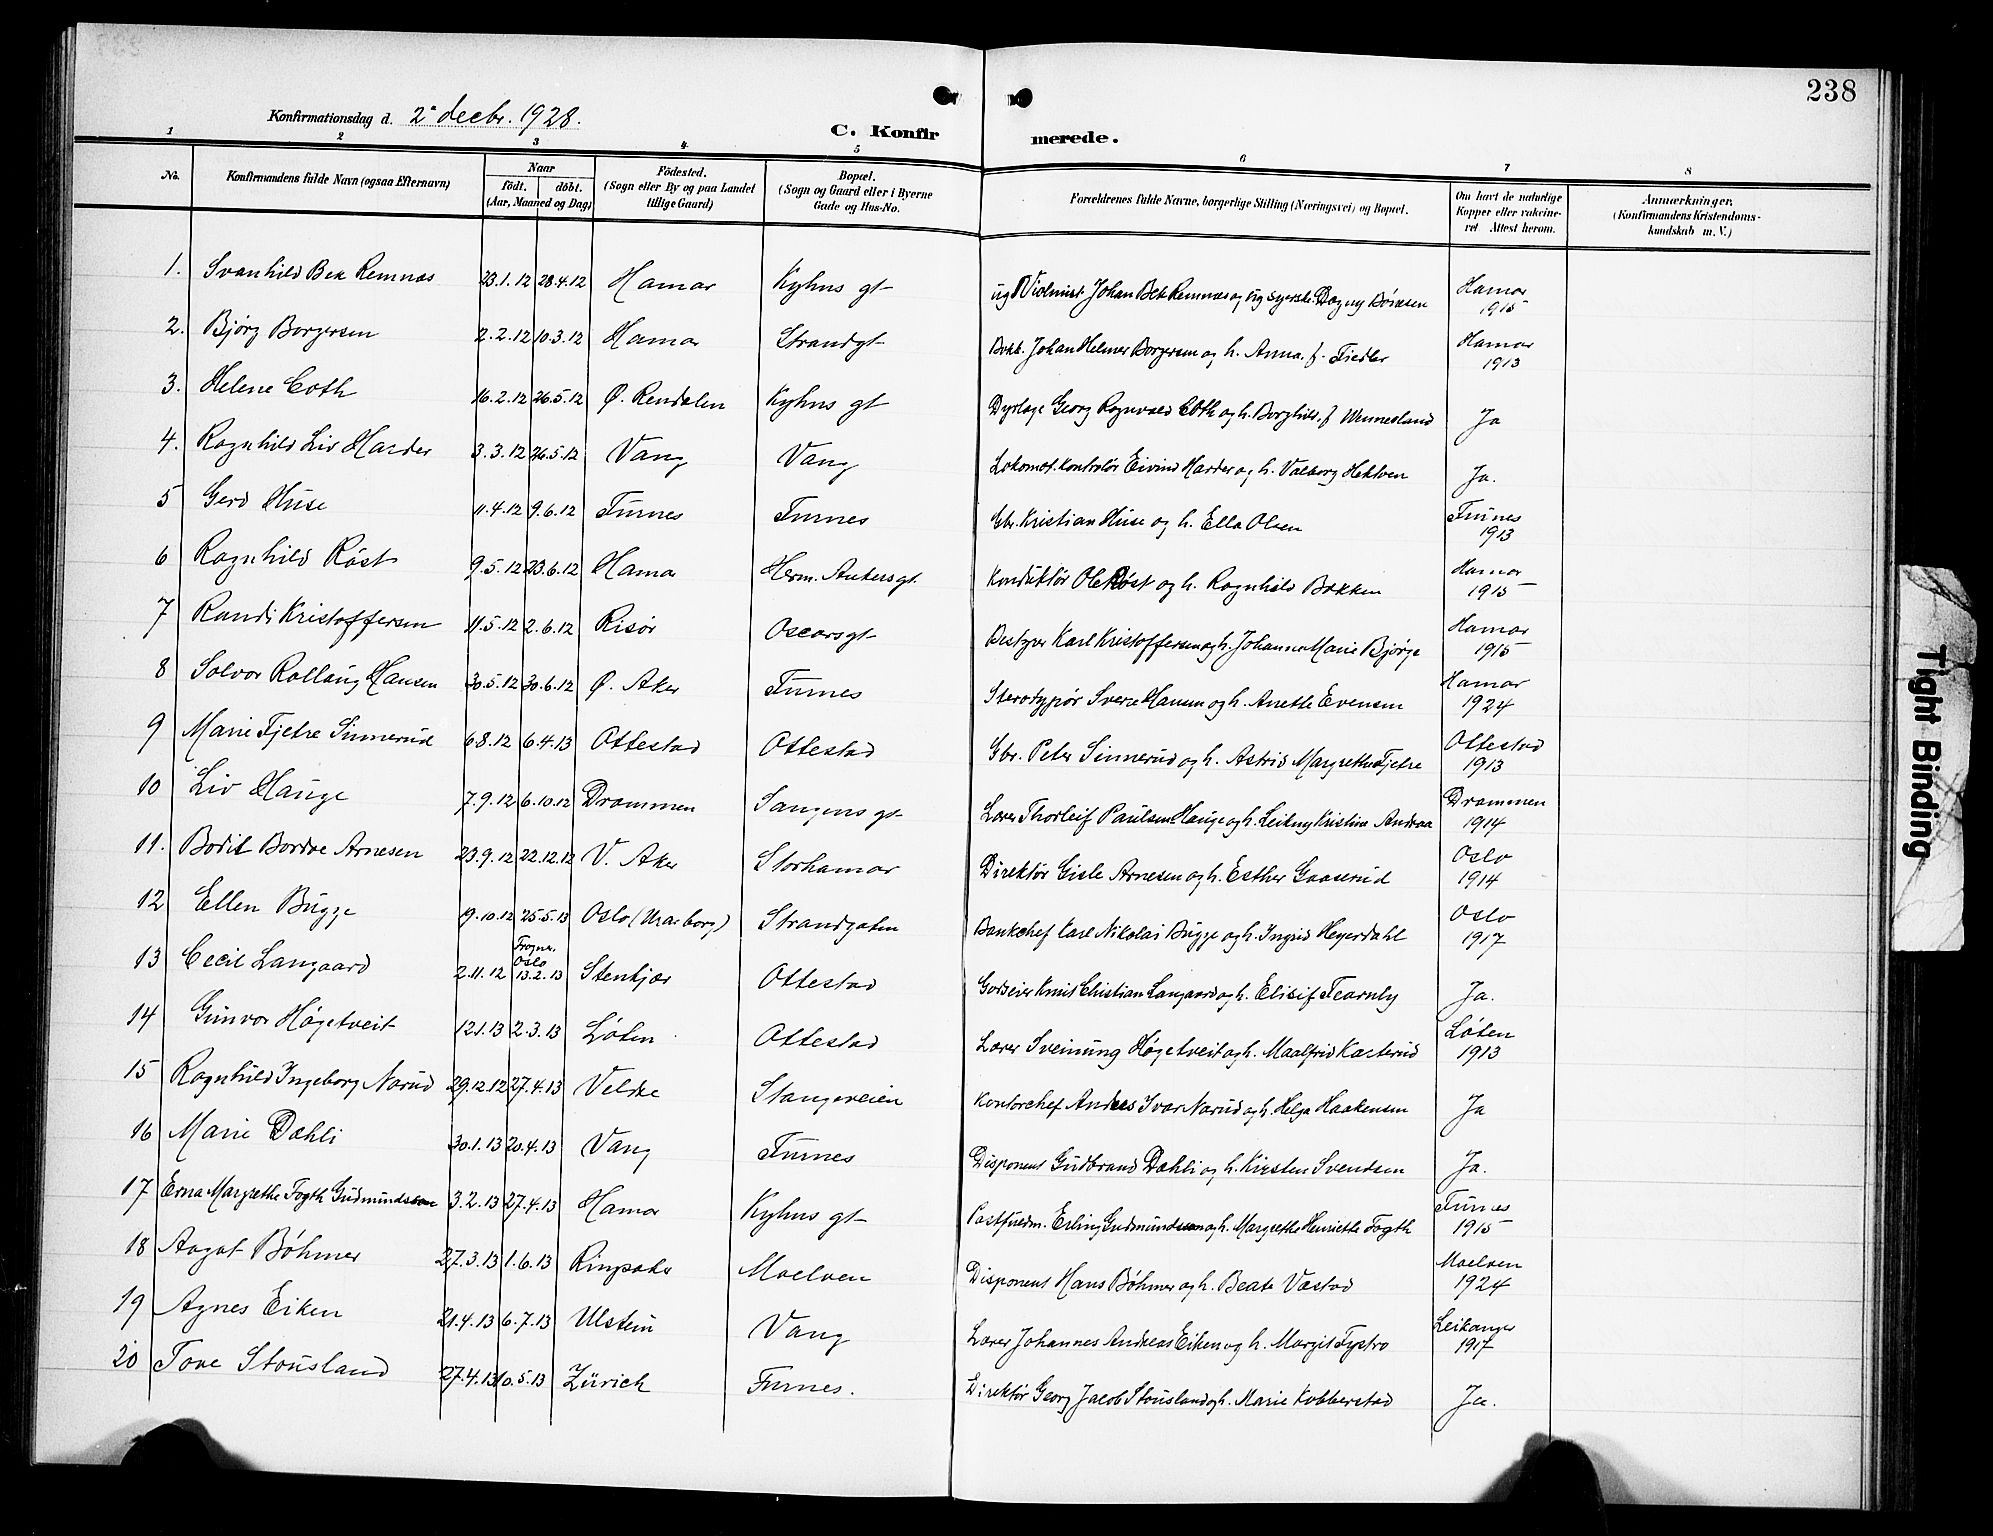 238
Konfirmationsdag d. 2' decbr. 1928.
C. Konfirmerede.
1 2 3 4 5 6 7 8
No. Konfirmandens fulde Navn (ogsaa Efternavn) Naar født. døbt. (Aar, Maaned og Dag) Fødested. (Sogn eller By og paa Landet tillige Gaard) Bopæl. (Sogn og Gaard eller i Byerne Gade og Hus-No. Forældrenes fulde Navne, borgerlige Stilling (Næringsvei) og Bopæl. Om havt de naturlige Kopper eller vakcineret Attest herom. Anmærkninger. (Konfirmandens Kristendomskundskab m. V.)
1. Svanhild Bek Remnæs 23.1.12 28.4.12 Hamar Kyhns gt Johan Bek Remnæs og ug syerske Dagny Hamar 1915
2. Bjørg Borgersen 2.2.12 10.3.12 Hamar Strandgt Bokb. Johan Helmer Borgersen og h. Anna f. Fiedler Hamar 1913
3. Helene Coth 16.2.12 26.5.12 Ø. Rendalen Kyhns gt Dyrlæge Georg Ragnvald Coth og h. Borghild f Wennesland Ja
4. Ragnhild Liv Harder 3.3.12 26.5.12 Vang Vang Lokomot.kontrolør Eivind Harder og h. Valborg Hektoen Ja.
5 Gerd Huse 11.4.12 9.6.12 Furnes Furnes Gbr. Kristian Huse og h. Ella Olsen Furnes 1913
6 Ragnhild Røst 9.5.12 23.6.12 Hamar Herm. Ankersgt Konduktør Ole Røst og h. Ragnhild Bakken Hamar 1915
7 Randi Kristoffersen 11.5.12 2.6.12 Risør Oscarsgt Bestyrer Karl Kristoffersen og h. Johanne Marie Bjørge Hamar 1915
8 Solvor Rollaug Hansen 30.5.12 30.6.12 Ø. Aker Furnes Sterotypør Sverre Hansen og h. Anette Evensen Hamar 1924
9 Marie Fjetre Sinnerud 6.8.12 6.4.13 Ottestad Ottestad Gbr. Peter Sinnerud og h. Astrid Margrethe Fjetre Ottestad 1913
10 Liv Hauge 7.9.12 6.10.12 Drammen Sangens gt Lærer Thorleif Paulsen Hauge og h. Leikny Kristine Andraa Drammen 1914
11. Bodil Bordoe Arnesen 23.9.12 22.12.12 V. Aker Storhamar Direktør Gisle Arnesen og h. Esther Gaaserud Oslo 1914
12 Ellen Bugge 19.10.12 25.5.13 Oslo (Uranborg) Strandgaten Bankchef Karl Nikolai Bugge og h. Ingrid Heyerdahl Oslo 1917
13 Cecil Langaard 2.11.12 Frogner, Oslo 13.2.13 Stenkjær Ottestad Godseier Knut Christian Langaard og h. Elisif Fearnly Ja.
14 Gunvor Høgetveit 12.1.13 2.3.13 Løten Ottestad Lærer Sveinung Høgetveit og h. Maalfrid Kasterud Løten 1913
15 Ragnhild Ingeborg Narud 29.12.12 27.4.13 Veldre Stangeveien Kontorchef Anders Ivar Narud og h. Helga Haakensen Ja
16 Marie Dæhli 30.1.13 20.4.13 Vang Furnes Disponent Gudbrand Dæhli og h. Kirsten Svendsen Ja.
17 Erna Margrethe Fogth Gudmundsson 3.2.13 27.4.13 Hamar Kyhns gt Postfuldm. Erling Gudmundsson og h. Margrethe Henriette Fogth Furnes 1915
18 Aagot Bøhmer 27.3.13 1.6.13 Ringsaker Moelven Disponent Hans Bøhmer og h. Beate Vastad Moelven 1924
19 Agnes Eiken 21.4.13 6.7.13 Ulstein Vang Lærer Johannes Andreas Eiken og h. Margit Fystro Leikanger 1917
20 Tove Stousland 27.4.13 10.5.13 Zürich Furnes. Direktør Georg Jacob Stousland og h. Marie Kobberstad Ja.
Tight Binding